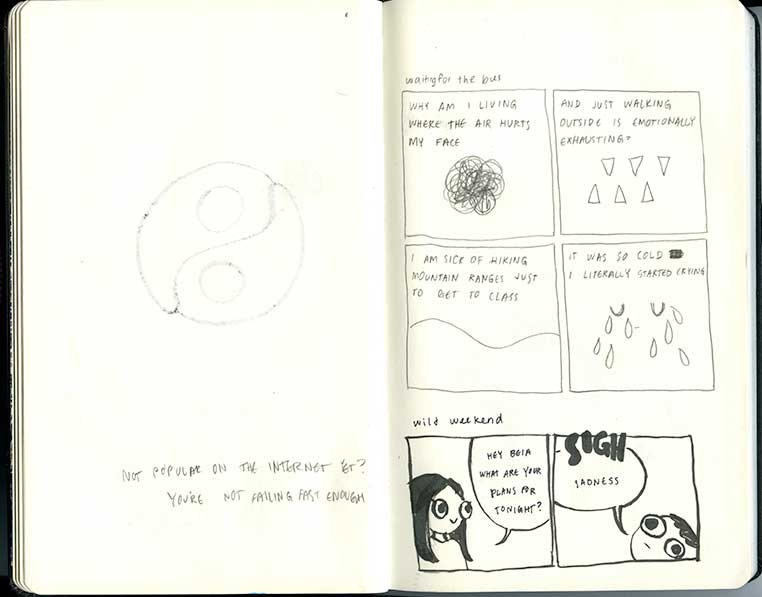 NOT POPULAR ON THE INTERNET YET?
YOU'RE NOT FAILING FAST ENOUGH
waiting for the bus
WHY AM I LIVING
WHERE THE AIR HURTS
MY FACE
AND JUST WALKING
OUTSIDE IS EMOTIONALLY
EXHAUSTING?
I AM SICK OF HIKING
MOUNTAIN RANGES JUST
TO GET TO CLASS
IT WAS SO COLD
I LITERALLY STARTED CRYING
wild weekend
HEY BEIA
WHAT ARE YOUR
PLANS FOR
TONIGHT?
SIGH
SADNESS